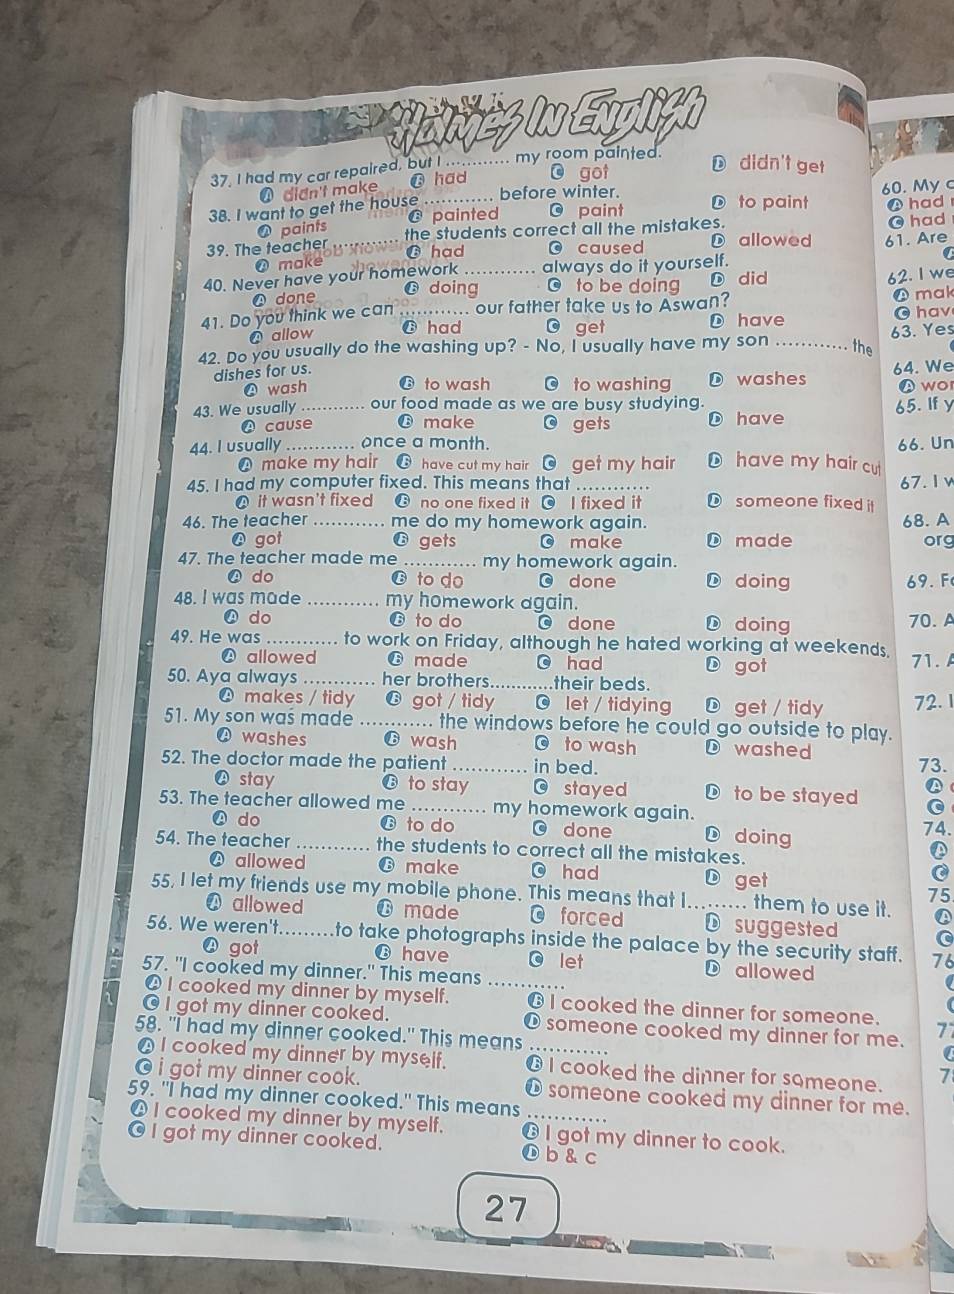 Homes In English
37. I had my car repaired, but I ............ my room painted.
A didn't make B had C got D didn't get
38. I want to get the house ............ before winter.
A paints B painted C paint D to paint
39. The teacher ............ the students correct all the mistakes.
A make B had C caused D allowed
40. Never have your homework ............ always do it yourself.
A done B doing C to be doing D did
41. Do you think we can ............ our father take us to Aswan?
A allow B had C get D have
42. Do you usually do the washing up? - No, I usually have my son ............ the
dishes for us.
A wash B to wash C to washing D washes
43. We usually ............ our food made as we are busy studying.
A cause B make C gets D have
44. I usually ............ once a month.
A make my hair B have cut my hair C get my hair D have my hair cut
45. I had my computer fixed. This means that ............
A it wasn't fixed B no one fixed it C I fixed it D someone fixed it
46. The teacher ............ me do my homework again.
A got B gets C make D made
47. The teacher made me ............ my homework again.
A do B to do C done D doing
48. I was made ............ my homework again.
A do B to do C done D doing
49. He was ............ to work on Friday, although he hated working at weekends.
A allowed B made C had D got
50. Aya always ............ her brothers............their beds.
A makes / tidy B got / tidy C let / tidying D get / tidy
51. My son was made ............ the windows before he could go outside to play.
A washes B wash C to wash D washed
52. The doctor made the patient ............ in bed.
A stay B to stay C stayed D to be stayed
53. The teacher allowed me ............ my homework again.
A do B to do C done D doing
54. The teacher ............ the students to correct all the mistakes.
A allowed B make C had D get
55. I let my friends use my mobile phone. This means that I......... them to use it.
A allowed B made C forced D suggested
56. We weren't.........to take photographs inside the palace by the security staff.
A got B have C let D allowed
57. "I cooked my dinner." This means ............
A I cooked my dinner by myself. B I cooked the dinner for someone.
C I got my dinner cooked. D someone cooked my dinner for me.
58. "I had my dinner cooked." This means ............
A I cooked my dinner by myself. B I cooked the dinner for someone.
C i got my dinner cook. D someone cooked my dinner for me.
59. "I had my dinner cooked." This means ............
A I cooked my dinner by myself. B I got my dinner to cook.
C I got my dinner cooked. D b & c
27
60. My
A had
C had
61. Are
62. I we
A
C
63. Yes
64. We
A
65. If
66.
67. I
68. A
69.
70. A
71.
72. I
73.
A
C
74.
A
C
75.
A
C
76
77